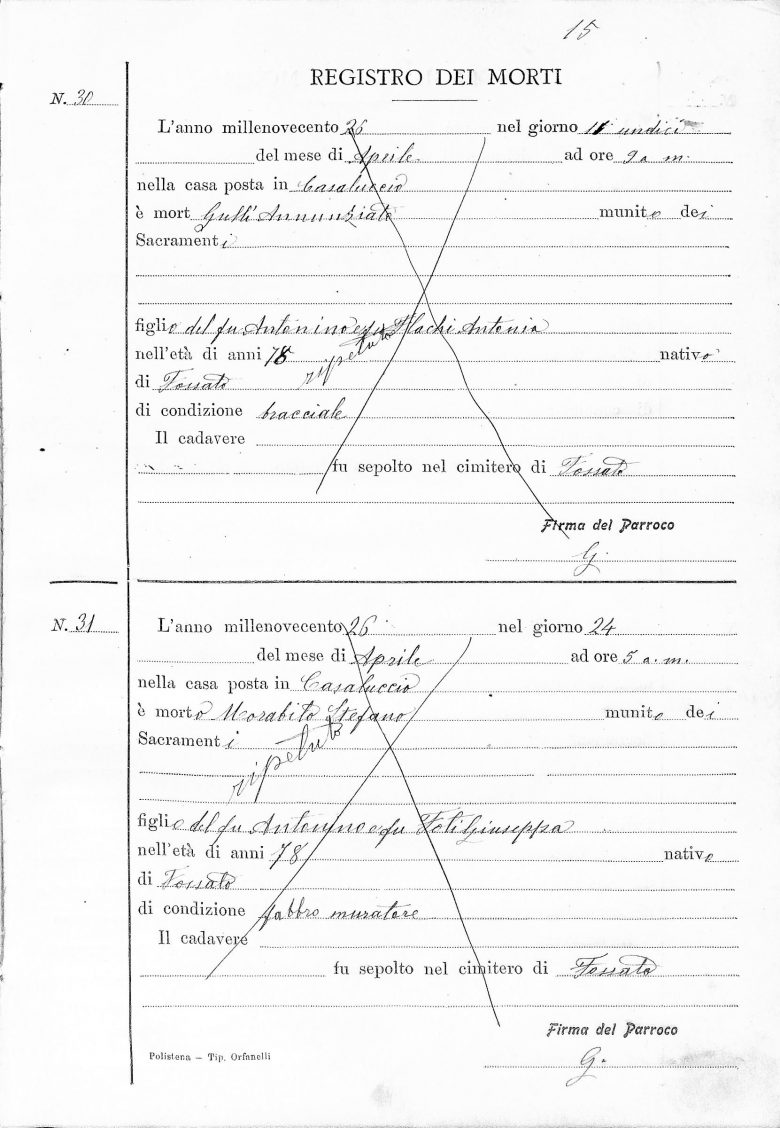 15
REGISTRO DEI MORTI
N. 30
L'anno millenovecento 26 nel giorno 11 undici
del mese di Aprile ad ore 9 a m.
nella casa posta in Casaluccio
è mort Gullì Annunziato munito dei
Sacramenti
figlio del fu Antonino e fu Flachi Antonia
ripetuto
nell'età di anni 78 nativo
di Fossato
di condizione bracciale
Il cadavere
fu sepolto nel cimitero di Fossato
Firma del Parroco
G.
N. 31
L'anno millenovecento 26 nel giorno 24
del mese di Aprile ad ore 5 a. m.
nella casa posta in Casaluccio
è morto Morabito Stefano munito dei
Sacramenti
ripetuto
figlio del fu Antonino e fu Foti Giuseppa
nell'età di anni 78 nativo
di Fossato
di condizione fabbro muratore
Il cadavere
fu sepolto nel cimitero di Fossato
Firma del Parroco
G.
Polistena – Tip. Orfanelli